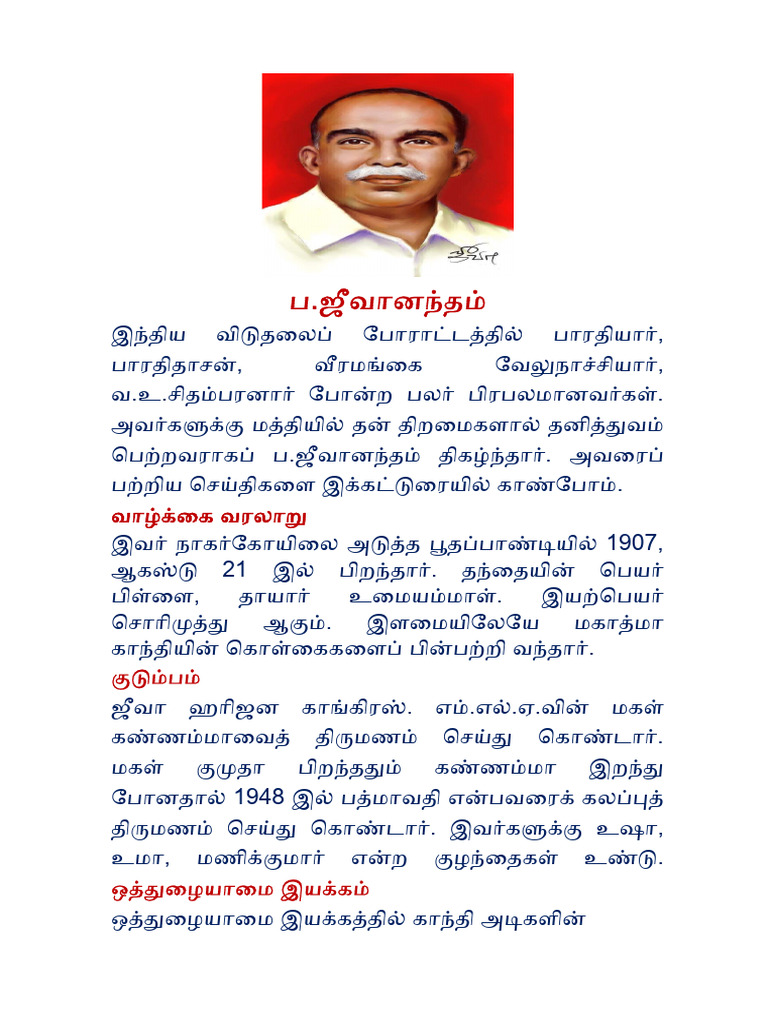 ப.ஜீவானந்தம்
இந்திய விடுதலைப் போராட்டத்தில் பாரதியார்,
பாரதிதாசன், வீரமங்கை வேலுநாச்சியார்,
வ.உ.சிதம்பரனார் போன்ற பலர் பிரபலமானவர்கள்.
அவர்களுக்கு மத்தியில் தன் திறமைகளால் தனித்துவம்
பெற்றவராகப் ப.ஜீவானந்தம் திகழ்ந்தார். அவரைப்
பற்றிய செய்திகளை இக்கட்டுரையில் காண்போம்.
வாழ்க்கை வரலாறு
இவர் நாகர்கோயிலை அடுத்த பூதப்பாண்டியில் 1907,
ஆகஸ்டு 21 இல் பிறந்தார். தந்தையின் பெயர்
பிள்ளை, தாயார் உமையம்மாள். இயற்பெயர்
சொரிமுத்து ஆகும். இளமையிலேயே மகாத்மா
காந்தியின் கொள்கைகளைப் பின்பற்றி வந்தார்.
குடும்பம்
ஜீவா ஹரிஜன காங்கிரஸ். எம்.எல்.ஏ.வின் மகள்
கண்ணம்மாவைத் திருமணம் செய்து கொண்டார்.
மகள் குமுதா பிறந்ததும் கண்ணம்மா இறந்து
போனதால் 1948 இல் பத்மாவதி என்பவரைக் கலப்புத்
திருமணம் செய்து கொண்டார். இவர்களுக்கு உஷா,
உமா, மணிக்குமார் என்ற குழந்தைகள் உண்டு.
ஒத்துழையாமை இயக்கம்
ஒத்துழையாமை இயக்கத்தில் காந்தி அடிகளின்